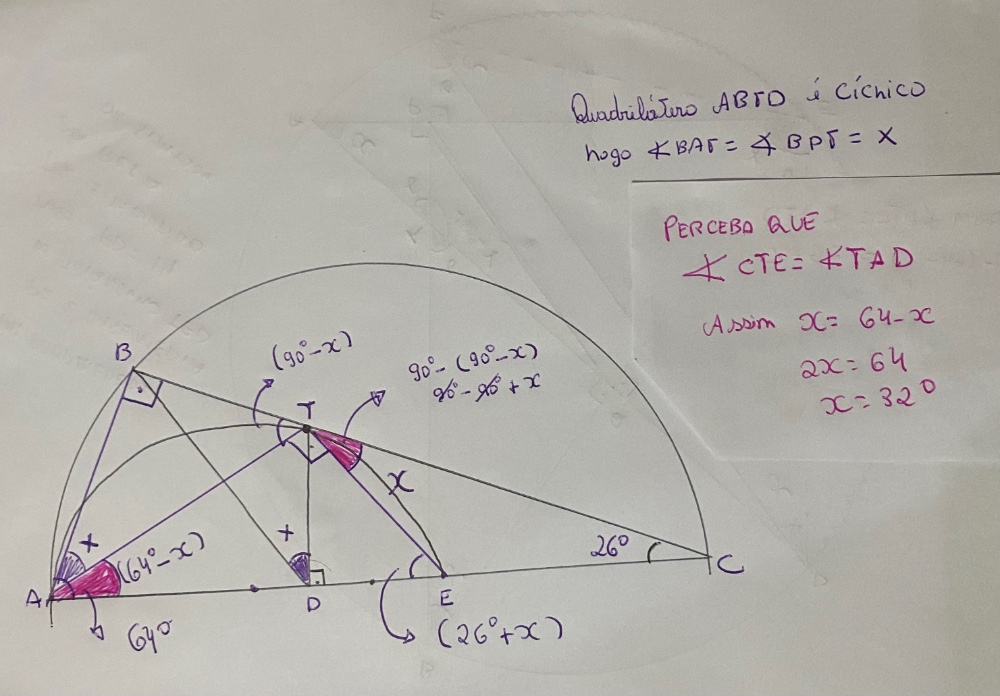 Quadrilátero ABTD é Cíclico
logo ∡BAT = ∡BDT = X
PERCEBA QUE
∡CTE = ∡TAD
Assim x = 64-x
2x = 64
x = 32°
B
(90°-x)
90°- (90°-x)
90°-90°+x
T
x
x
(64°-x)
x
26°
C
A
64°
D
E
(26°+x)